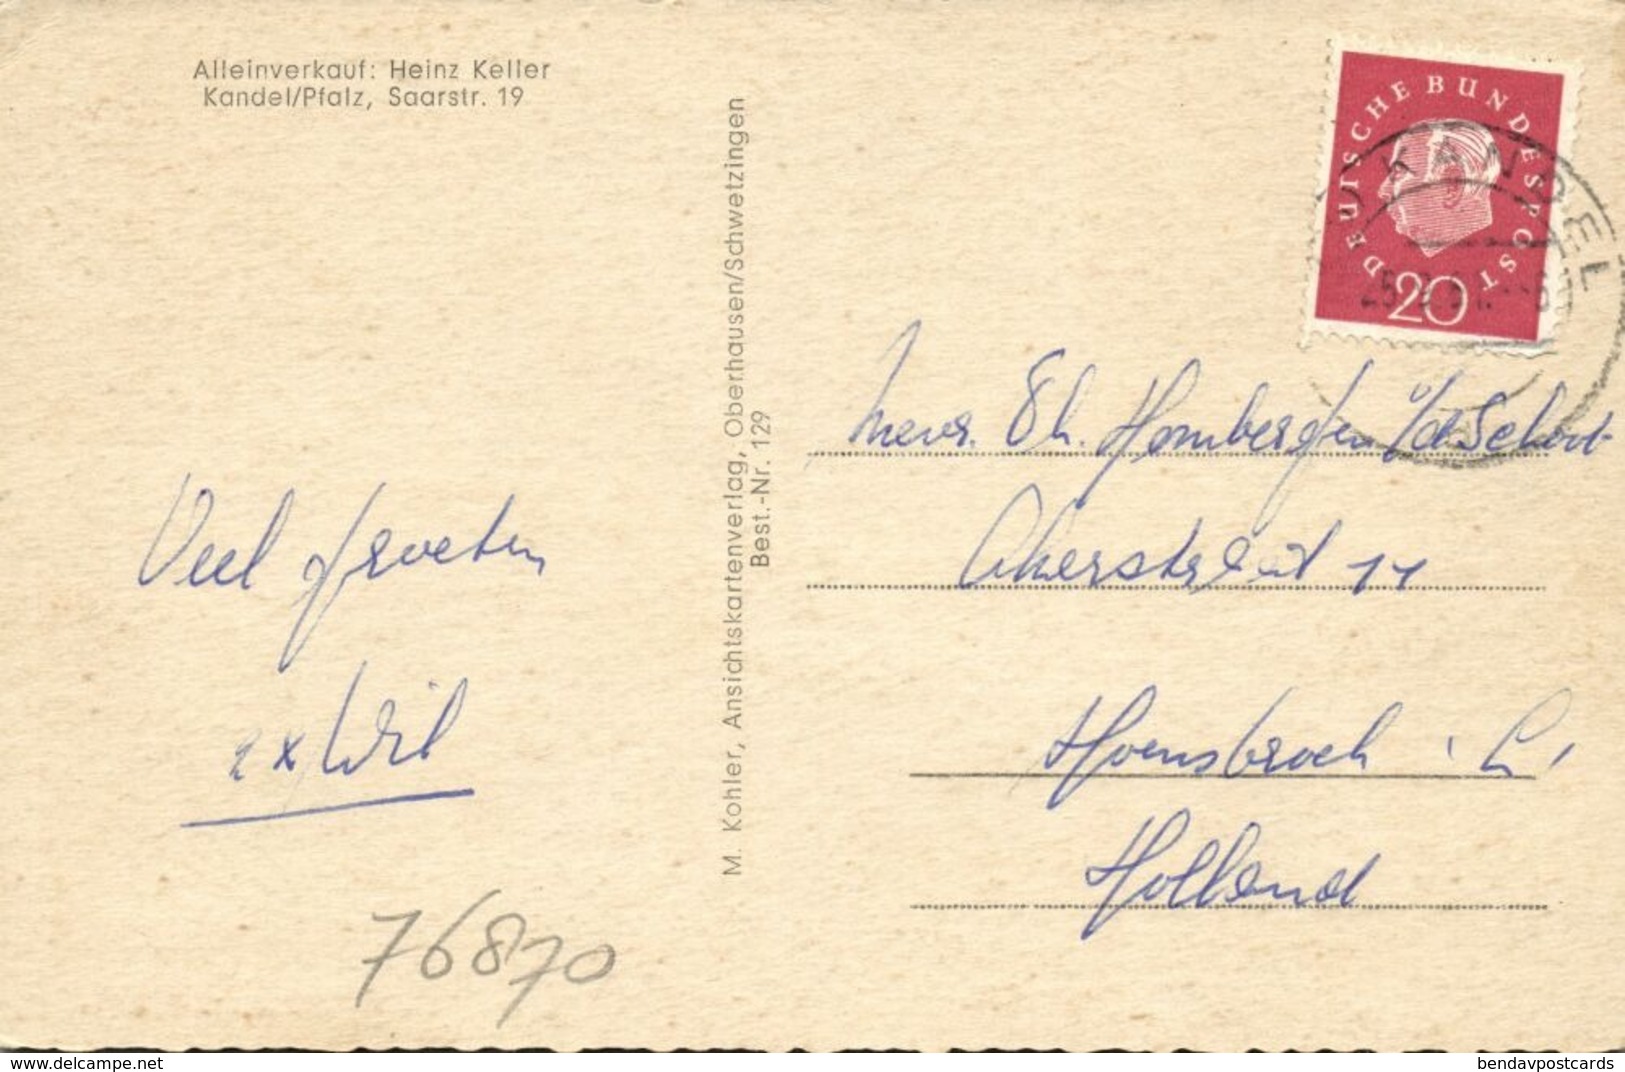 Alleinverkauf: Heinz Keller
Kandel/Pfalz, Saarstr. 19
M. Kohler, Ansichtskartenverlag, Oberhausen/Schwetzingen
Best.-Nr. 129
DEUTSCHE BUNDESPOST
20
KANDEL
Mevr. Homberg v/d Schoot
Akerstraat 11
Hoensbroek L.
Holland
Veel groeten
2x Wil
76870
www.delcampe.net
bendavpostcards